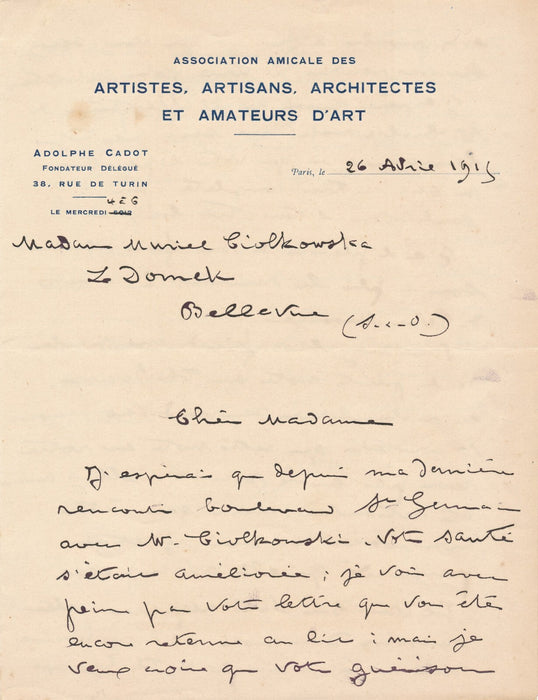 ASSOCIATION AMICALE DES
ARTISTES, ARTISANS, ARCHITECTES
ET AMATEURS D'ART
ADOLPHE CADOT
FONDATEUR DÉLÉGUÉ
38, RUE DE TURIN
4 à 6
LE MERCREDI SOIR
Paris, le 26 Avril 1915
Madame Muriel Ciolkowska
Le Domek
Bellevue (S.-e-O.)
Chère Madame
J'espérais que depuis ma dernière
rencontre boulevard St Germain
avec M. Ciolkowski, votre santé
s'était améliorée ; je vois avec
peine par votre lettre que vous êtes
encore retenue au lit ; mais je
veux croire que votre guérison